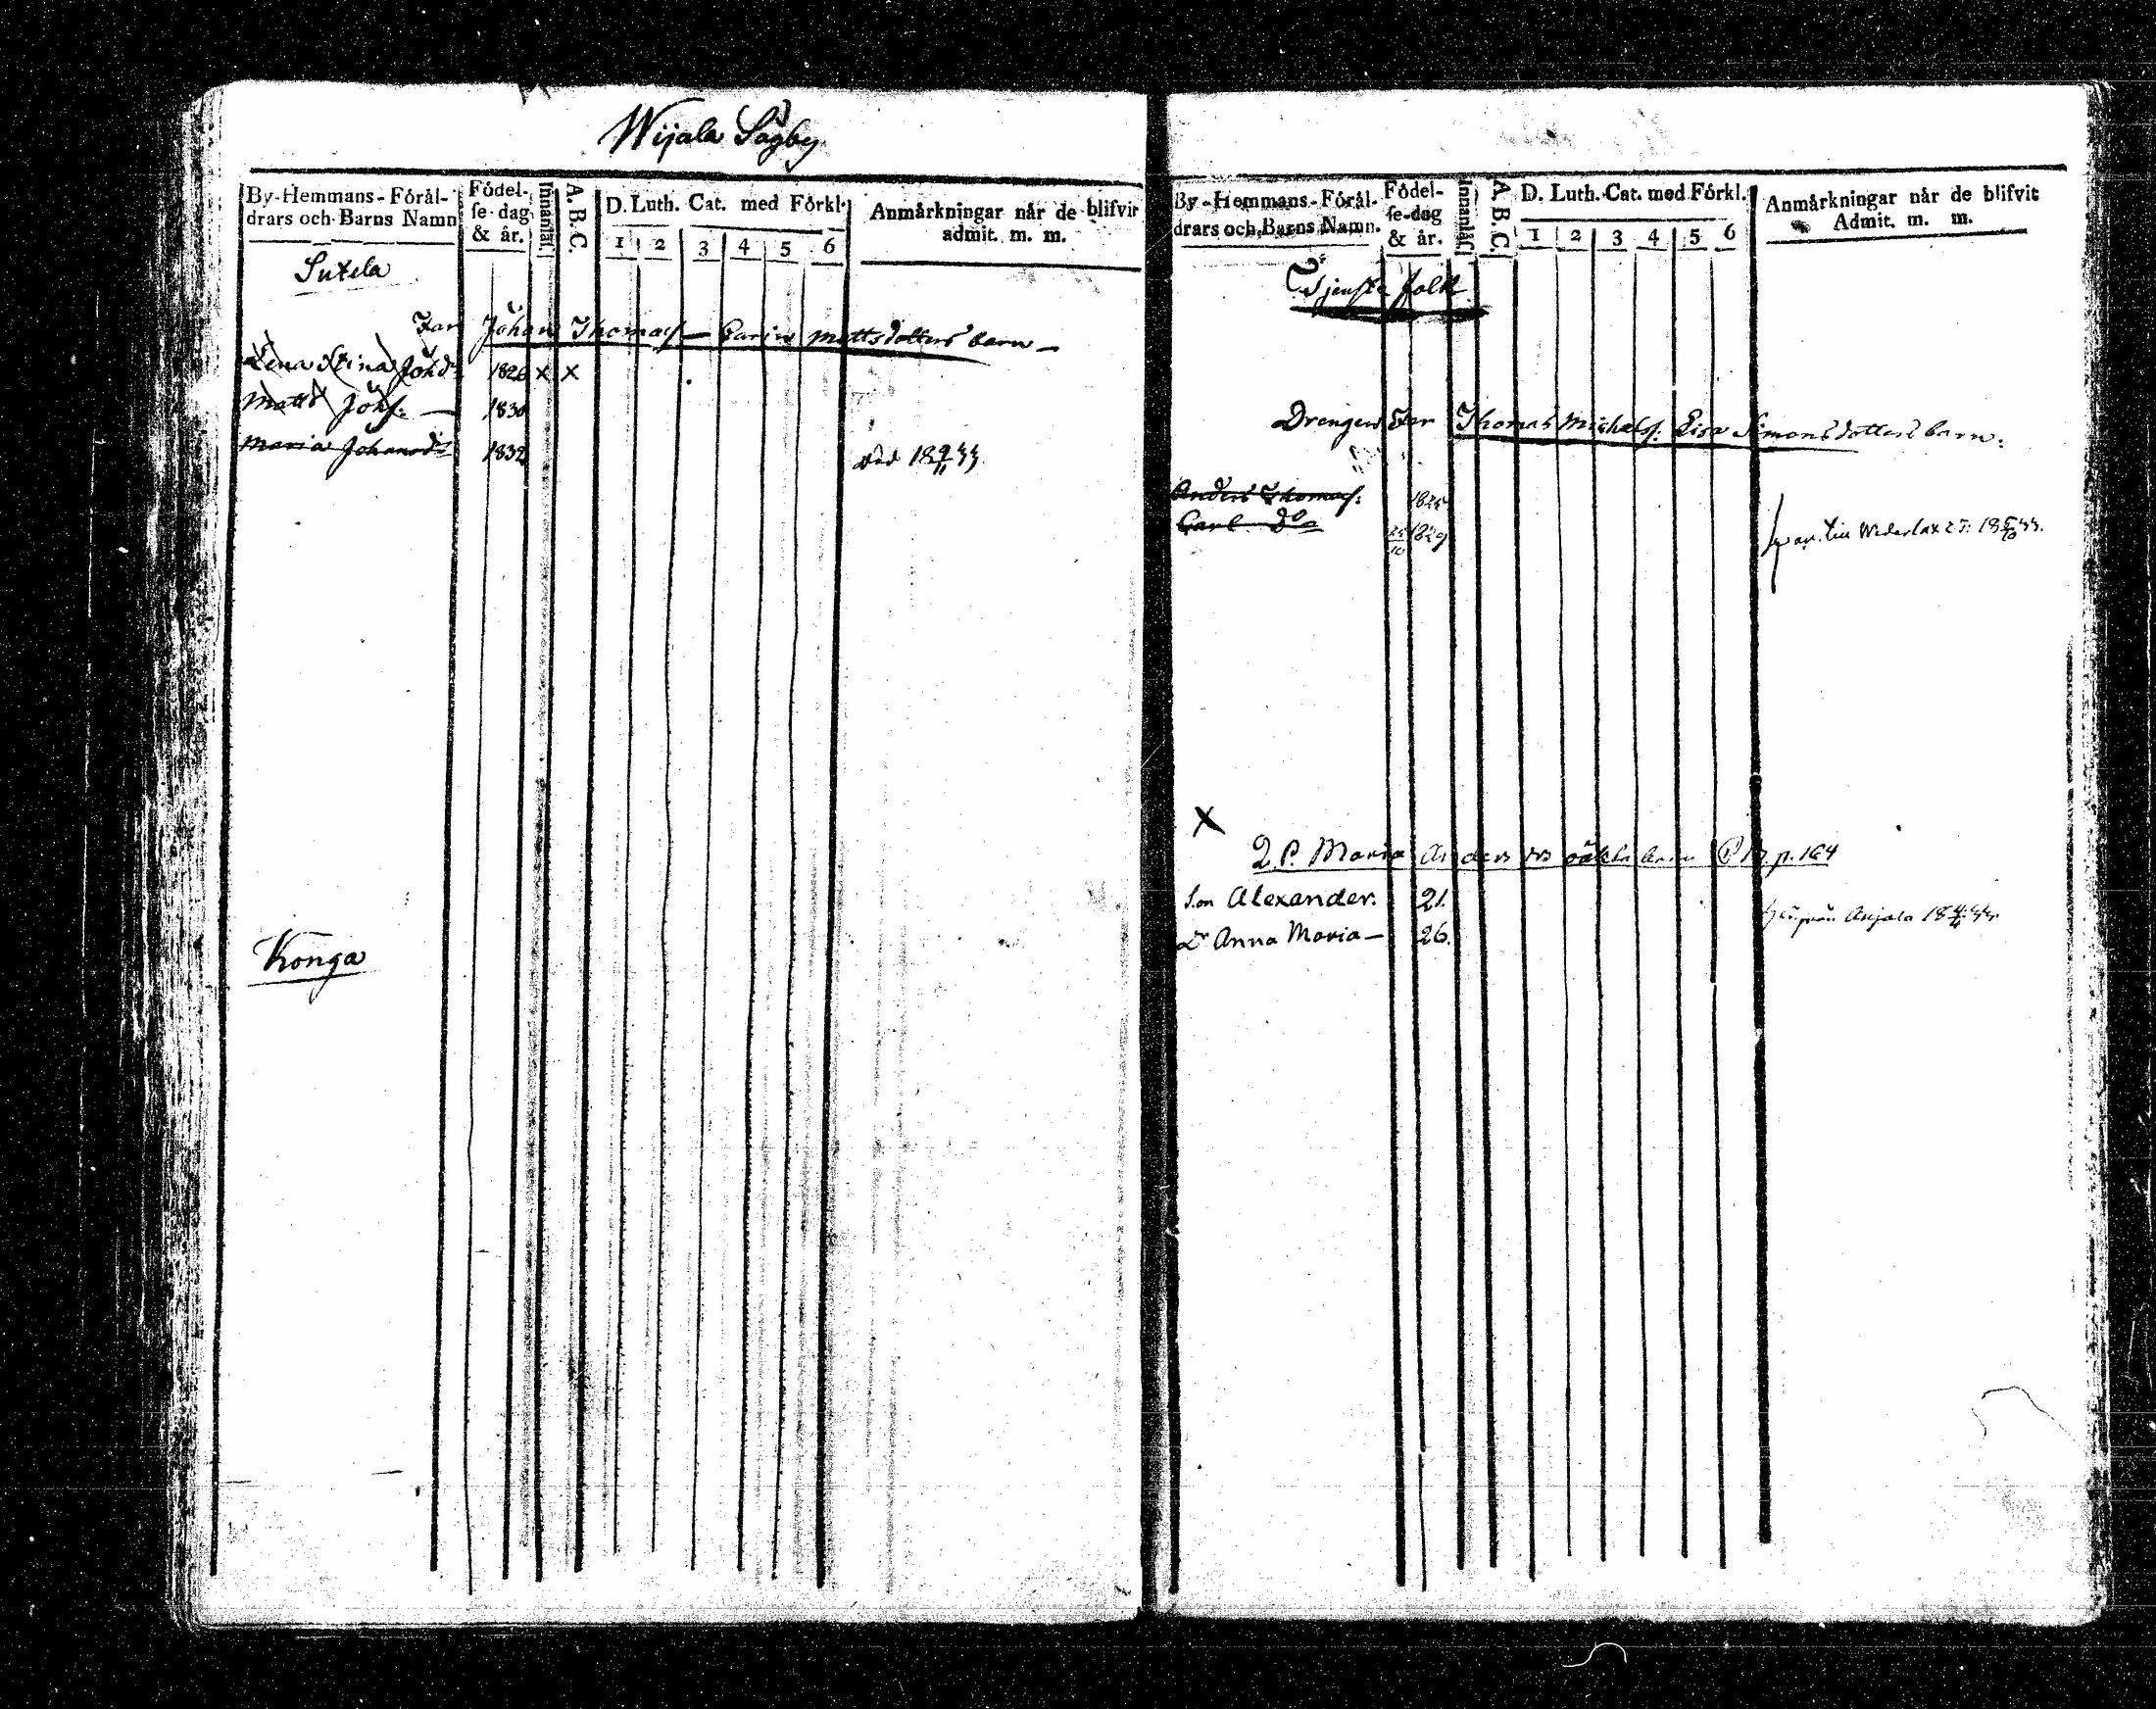 Wijala Sågby
By-Hemmans-Föräl-
drars och Barns Namn
Födel-
se-dag
& år.
Innanläs.
A. B. C.
D. Luth. Cat. med Förkl.
1 2 3 4 5 6
Anmärkningar när de blifvit
admit. m. m.
Sutela
Johan Thomass— Carin Mattsdotters barn —
Lena Stina Johds 1826 x x
Matts Johs. — 1830
Maria Johansdr 1832
Konga
By-Hemmans-Föräl-
drars och Barns Namn.
Födel-
se-dag
& år.
Innanläs.
A. B. C.
D. Luth. Cat. med Förkl.
1 2 3 4 5 6
Anmärkningar när de blifvit
Admit. m. m.
Tjenste folk
Drengen Thomas Michelss. Lisa Simonsdotters barn.
Anders Thomass.
Carl Do 1829
X
Q. P. Maria Anders oäkta barn p. 164
Son Alexander. 21.
Dr Anna Maria — 26.
från Anjala